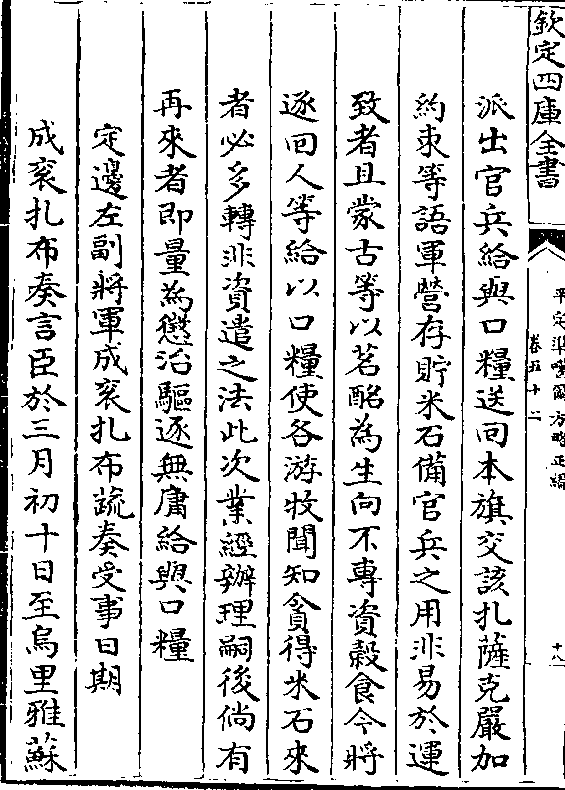 欽定四庫全書
平定準噶爾方略正編
卷五十二
十八
派出官兵給與口糧送回本旗交該扎薩克嚴加
約束等語軍營存貯米石備官兵之用非易於運
致者且蒙古等以茗酪為生向不專資穀食今將
逐回人等給以口糧使各游牧聞知貪得米石來
者必多轉非資遣之法此次業經辦理嗣後倘有
再來者即量為懲治驅逐無庸給與口糧
定邊左副將軍成袞扎布疏奏受事日期
成袞扎布奏言臣於三月初十日至烏里雅蘇